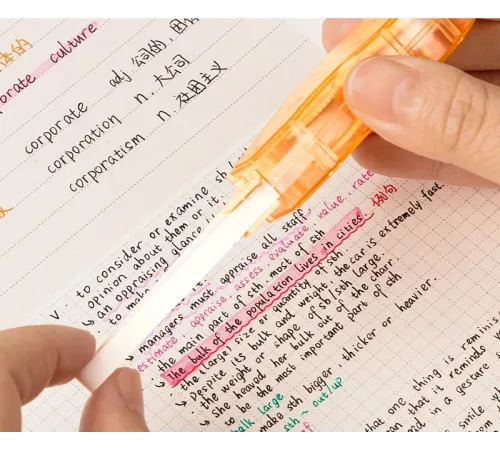 体的
porate culture
corporate adj 公司的, 团体的
corporation n. 大公司
corporatism n. 社团主义
v to consider or examine
opinion about them or it.
↳ an appraising glance
↳ managers must appraise all staff.
estimate appraise assess evaluate value, rate
the main part of sth most of sth
↳ The bulk of the population lives in cities. 例句
: the (large) size or quantity of sth
↳ Despite its bulk and weight, the car is extremely fast
: the weight or shape of sb/sth large
↳ She heaved her bulk out of the chair
: to be the most important part of sth
bulk large
make sth bigger thicker or heavier.
sth ~ out/up
that one thing is reminis
an that it reminds y
nd in a gesture
smile